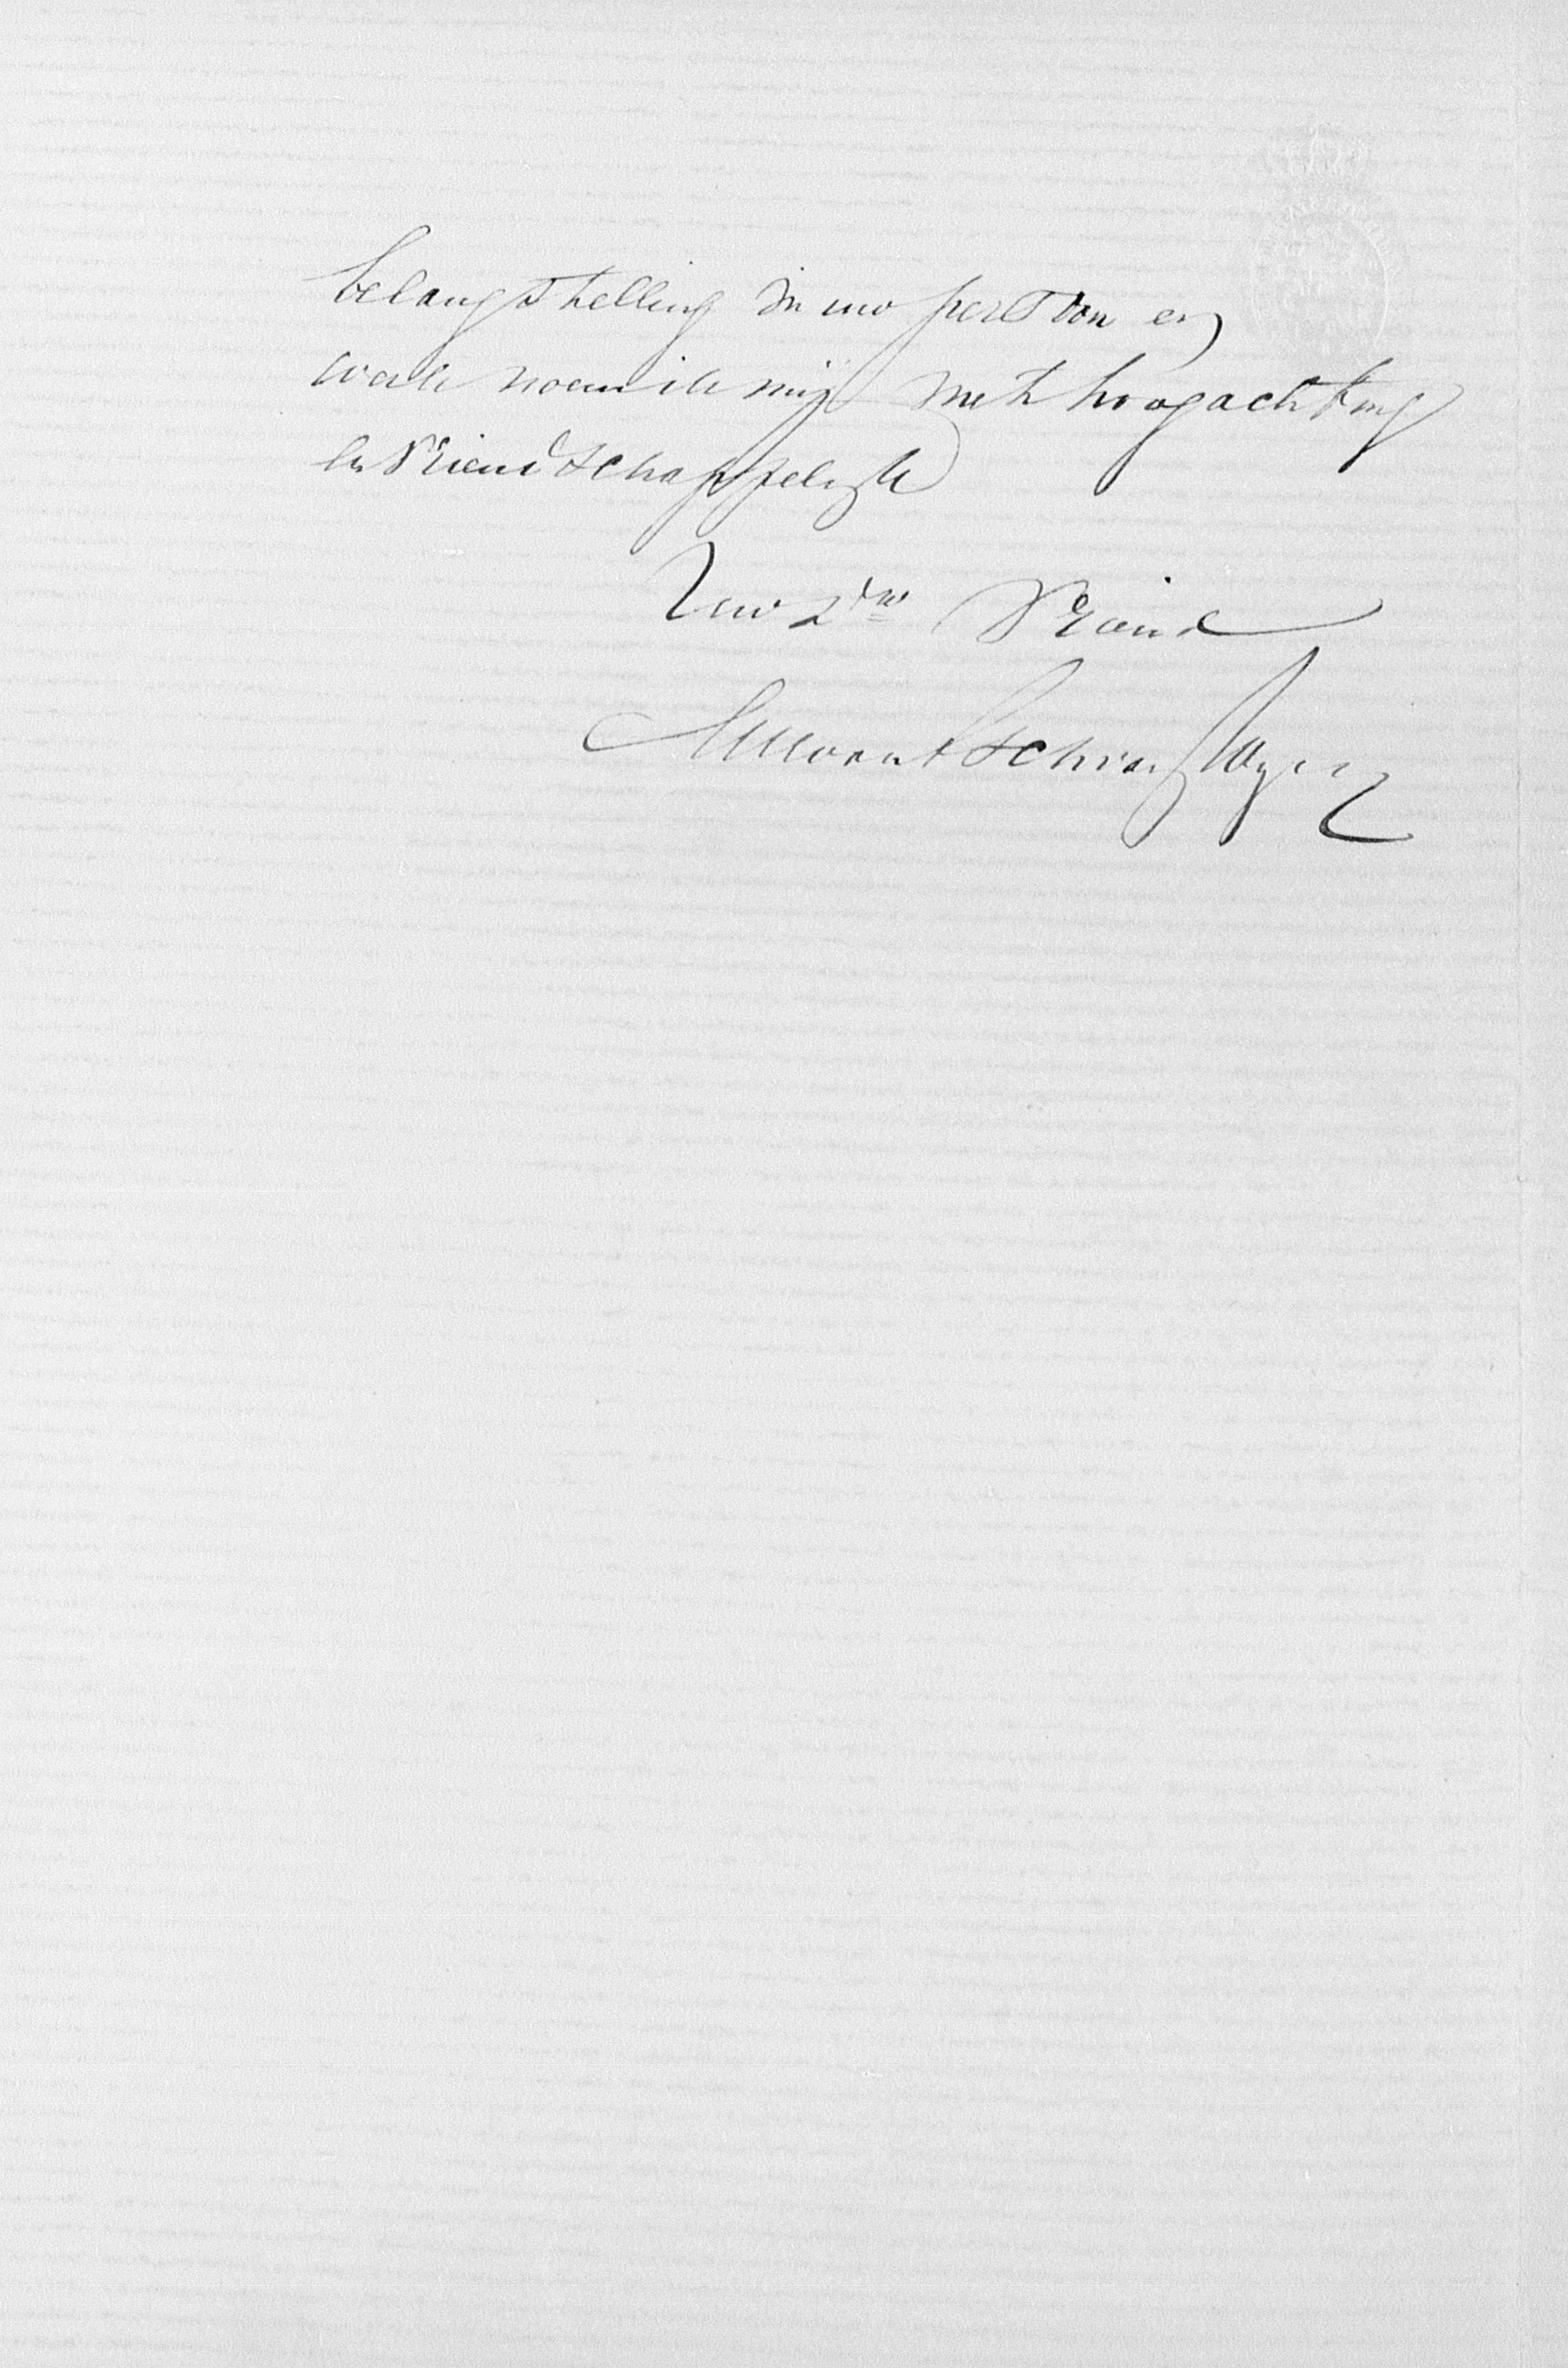 belangstelling in uw persoon en
werk noem ik mij met hoogachting
en vriendschappelijk
Uw dw Vriend